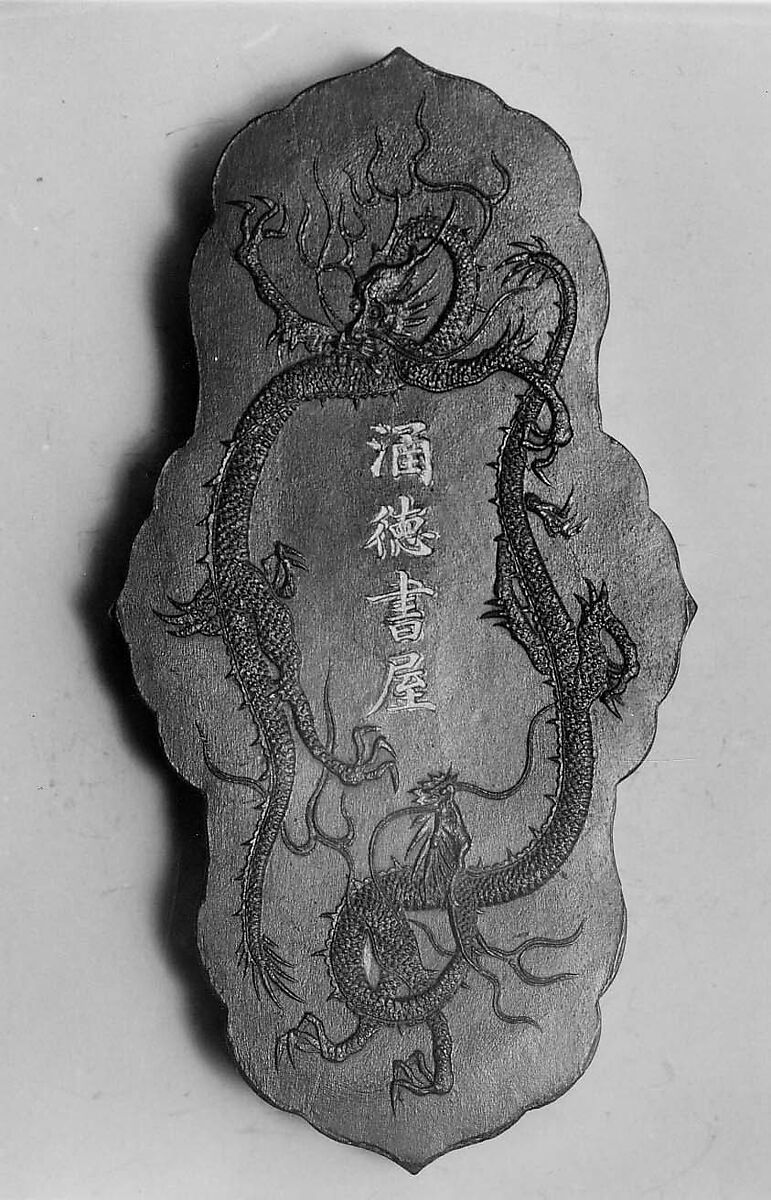 涵德書屋